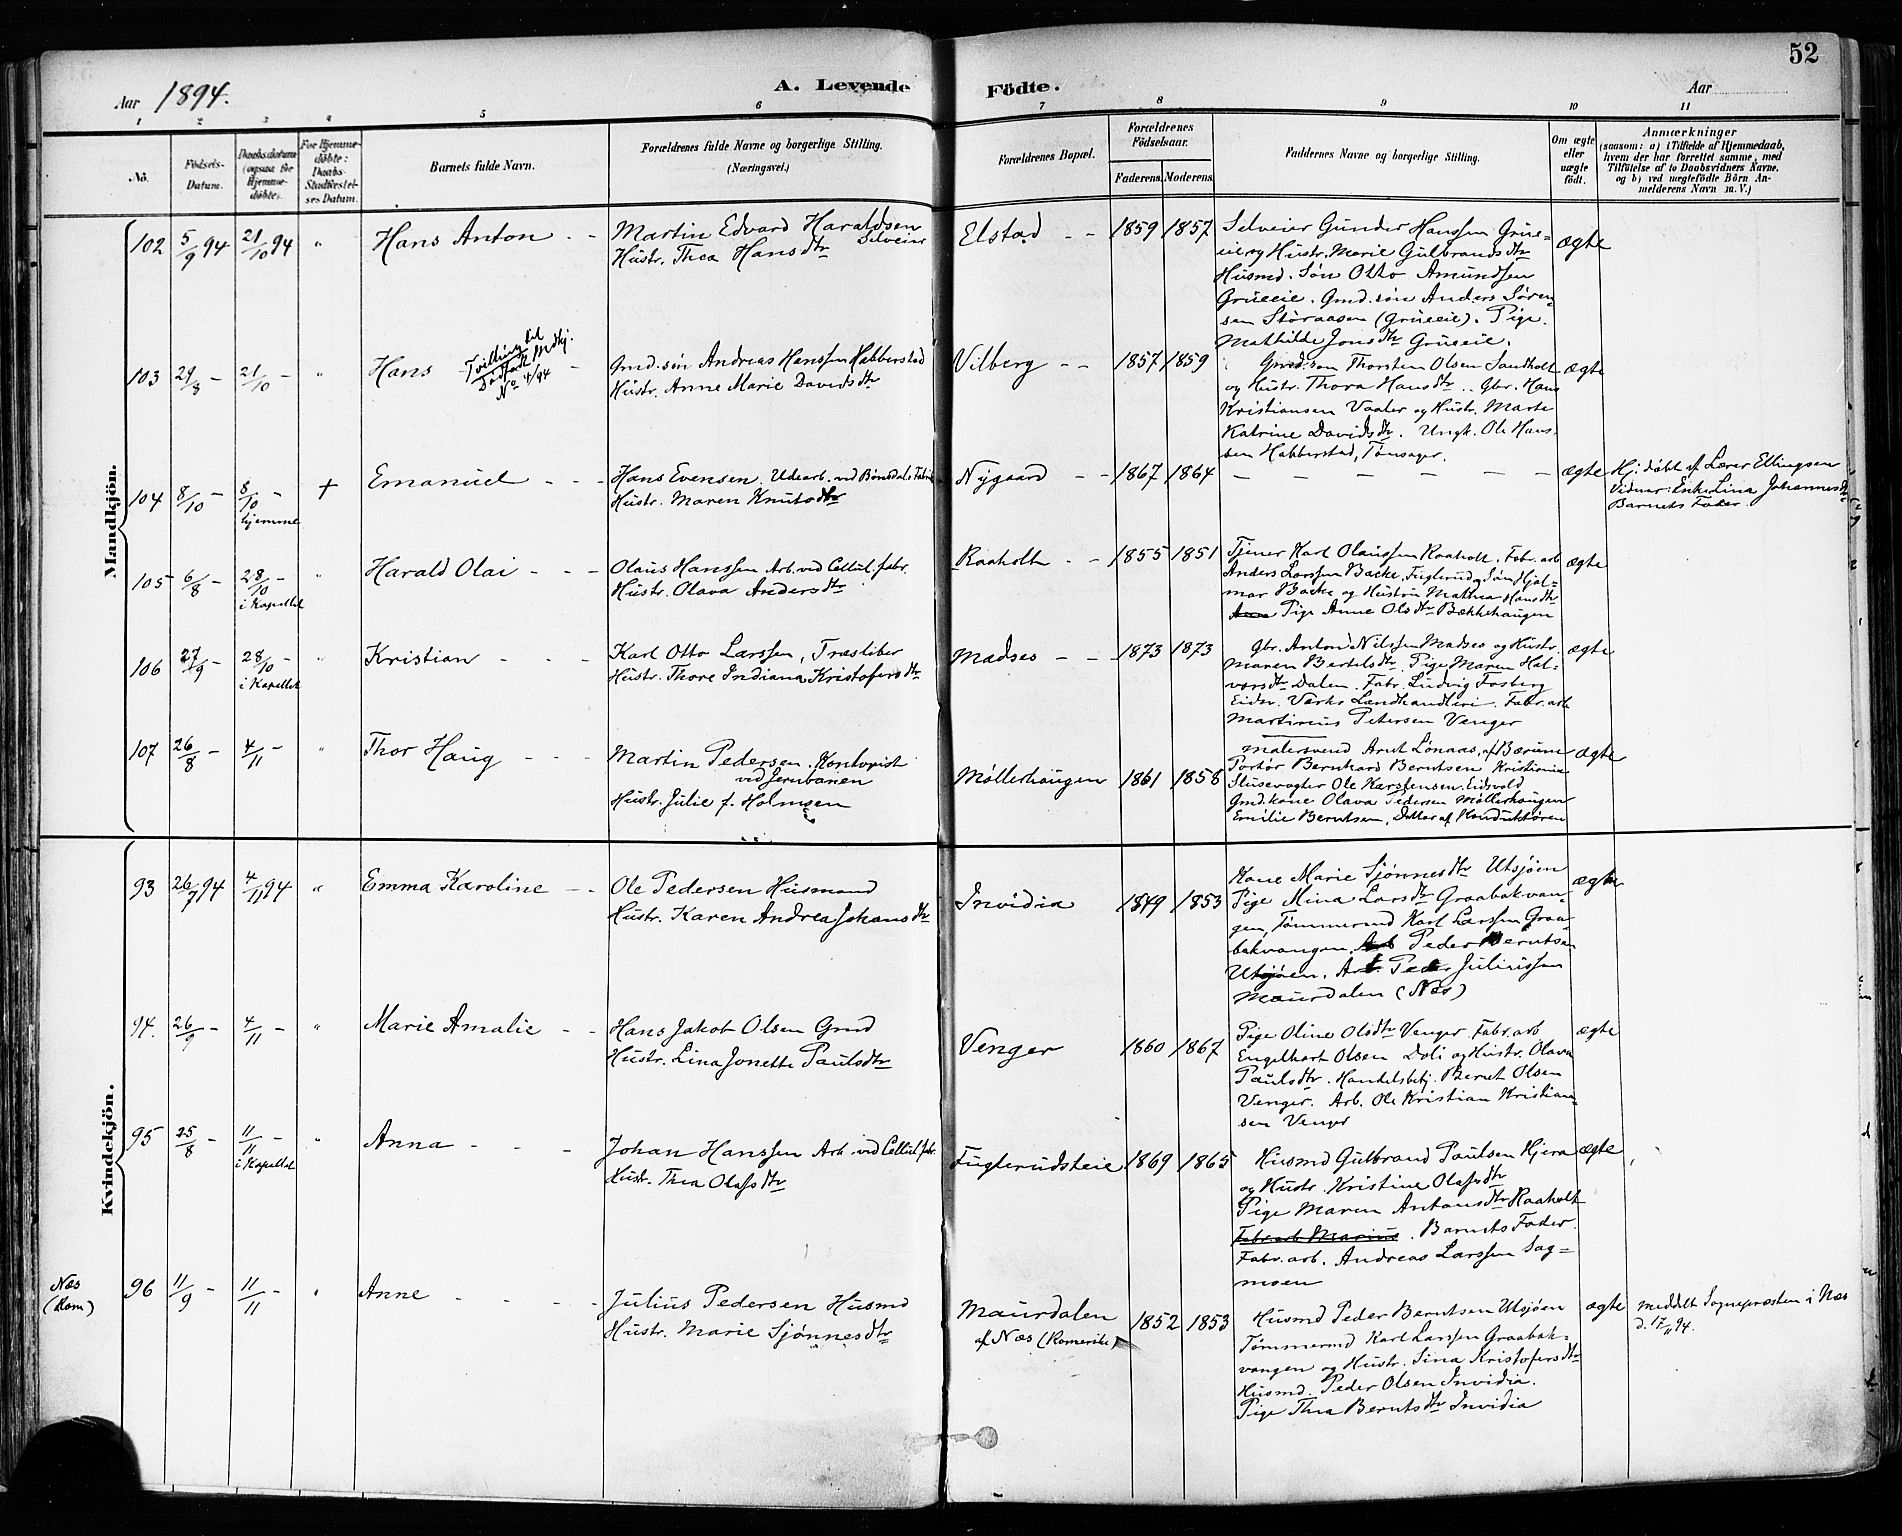 52
Aar 1894.
A. Levende Födte.
Aar
1 2 3 4 5 6 7 8 9 10 11
No.
Födsels-
Datum.
Daabsdatum
(ogsaa for
Hjemme-
døbte).
For Hjemme-
døbte:
Daabs
Stadfæstel-
ses Datum.
Barnets fulde Navn.
Forældrenes fulde Navne og borgerlige Stilling.
(Næringsvei.)
Forældrenes Bopæl.
Forældrenes
Födselsaar.
Faderens. Moderens.
Faddernes Navne og borgerlige Stilling.
Om ægte
eller
uægte
födt.
Anmærkninger
(saasom: a) i Tilfælde af Hjemmedaab,
hvem der har forrettet samme, med
Tilföielse af to Daabsvidners Navne,
og b) ved uægtefödte Börn An-
melderens Navn m. V.)
Mandkjön.
102 5/9 94 21/10 94 " Hans Anton - -
Martin Edvard Haraldsen
Selveier
Hustr. Thea Hansdtr
Elstad - - 1859 1857
Selveier Gunder Hanssen Grue-
eie og Hustr. Marie Gulbrandsdtr
Husmd. Søn Otto Amundsen
Grueeie. Gmd. søn Anders Søren-
sen Storaasen (Grueeie). Pige
Mathilde Jonsdtr Grueeie.
ægte
103 29/8 - 21/10 - " Hans
Tvilling til
Dødfødt Mdkj.
No 4/94
Gmd. søn Andreas Hanssen Habberstad
Hustr. Anne Marie Davidsdtr
Vilberg - - 1857 1859
Gmd. søn Thorsten Olsen Sandholt
og Hustr. Thora Hansdtr. Gbr. Hans
Kristiansen Vaaler og Hustr. Marte
Katrine Davidsdtr. Ungk. Ole Hans-
sen Habberstad, Tønsager.
ægte
104 8/10 - 8/10 - hjemme + Emanuel - - -
Hans Evensen. Udearb. ved Bønsdals Fabrik
Hustr. Maren Knutsdtr
Nygaard - - 1867 1864 - - - - - ægte
Hj. døbt af Lærer Ellingsen
Vidner: Enke Lina Johannesdtr
Barnets Fader.
105 6/8 - 28/10 - i Kapellet " Harald Olai - - -
Olaus Hanssen Arb. ved Cellul. fabr.
Hustr. Olava Andersdtr
Raaholt - - 1855 1851
Tjener Karl Olaussen Raaholt. Fabr. arb
Anders Larssen Bakke, Fuglerud, Søn Hjal-
mar Bakke og Hustru Mathea Hansdtr
Pige Anne Olsdtr Bækkehaugen
ægte
106 27/9 - 28/10 - i Kapellet " Kristian - - -
Karl Otto Larssen, Træsliber
Hustr. Thore Indiana Kristofersdtr
Madses - - 1873 1873
Gbr. Anton Nilssen Madses og Hustr.
Maren Bertelsdtr. Pige Maren Hal-
vorsdtr Dalen. Fabr. Ludvig Fosberg
Eidsv. Værks Landhandleri. Fabr. arb
Martinius Petersen Venger
ægte
107 26/8 - 4/11 - " Thor Haug - - -
Martin Pedersen. Kontorist
ved Jernbanen
Hustr. Julie f. Holmsen
Møllerhaugen 1861 1858
Malersvend Arnt Lønaas, af Bærum
Portør Bernhard Berntsen Kristiania
Slusevogter Ole Karstensen. Eidsvold
Gmd. kone Olava Pedersen Møllerhaugen
Emilie Berntsen, Datter af Konduktøren
ægte
Kvindekjön.
93 26/7 94 4/11 94 " Emma Karoline - -
Ole Pedersen Husmand
Hustr. Karen Andrea Johansdtr
Invidia 1849 1853
Kone Marie Sjønnesdtr Utsjøen
Pige Mina Larsdtr Graabakvan-
gen, Tømmermd Karl Larssen Graa-
bakvangen, Arb Peder Berntsen
Utsjøen. Arb. Peder Juliussen
Maurdalen (Næs)
ægte
94. 26/9 - 4/11 - " Marie Amalie - -
Hans Jakob Olsen Gmd
Hustr. Lina Jonette Paulsdtr
Venger 1860 1867
Pige Oline Olsdtr Venger. Fabr. arb
Engelhart Olsen Doli og Hustr. Olava
Paulsdtr. Handelsbetj. Bernt Olsen
Venger. Arb. Ole Kristian Kristian-
sen Venger
ægte
95 25/8 - 11/11 - i Kapellet " Anna - - -
Johan Hanssen Arb. ved Cellul. fabr.
Hustr. Thea Olafsdtr
Fuglerudseie 1869 1865
Husmd Gulbrand Paulsen Hjera
og Hustr. Kristine Olafsdtr
Pige Maren Antonsdtr Raaholt
Fabr. arb Marius. Barnets Fader.
Fabr. arb. Andreas Larssen Sag-
moen
ægte
Næs
(Rom)
96 11/9 - 11/11 - " Anne - - - -
Julius Pedersen Husmd
Hustr. Marie Sjønnesdtr
Maurdalen
af Næs (Romerike)
1852 1853
Husmd Peder Berntsen Utsjøen
Tømmermd Karl Larssen Graabak-
vangen og Hustr. Sina Kristofersdtr
Husmd. Peder Olsen Invidia.
Pige Thea Berntsdtr Invidia
ægte
meddelt Sognepræsten i Næs
d. 17/11 94.